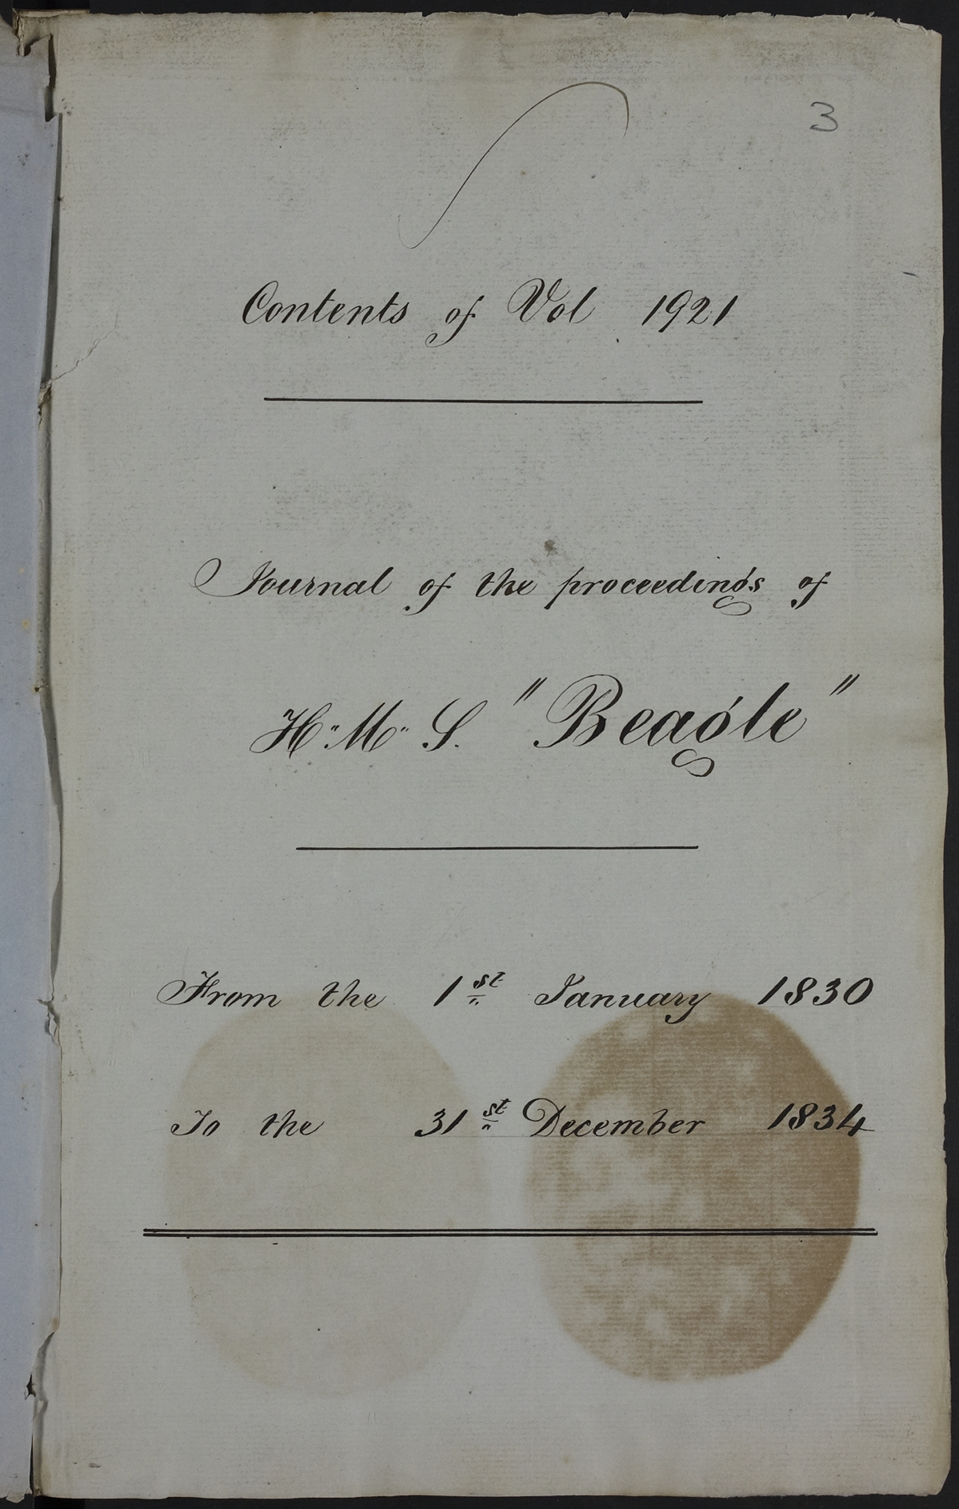 3
Contents of Vol 1921
Journal of the proceedings of
H.M.S. "Beagle"
From the 1st January 1830
To the 31st December 1834